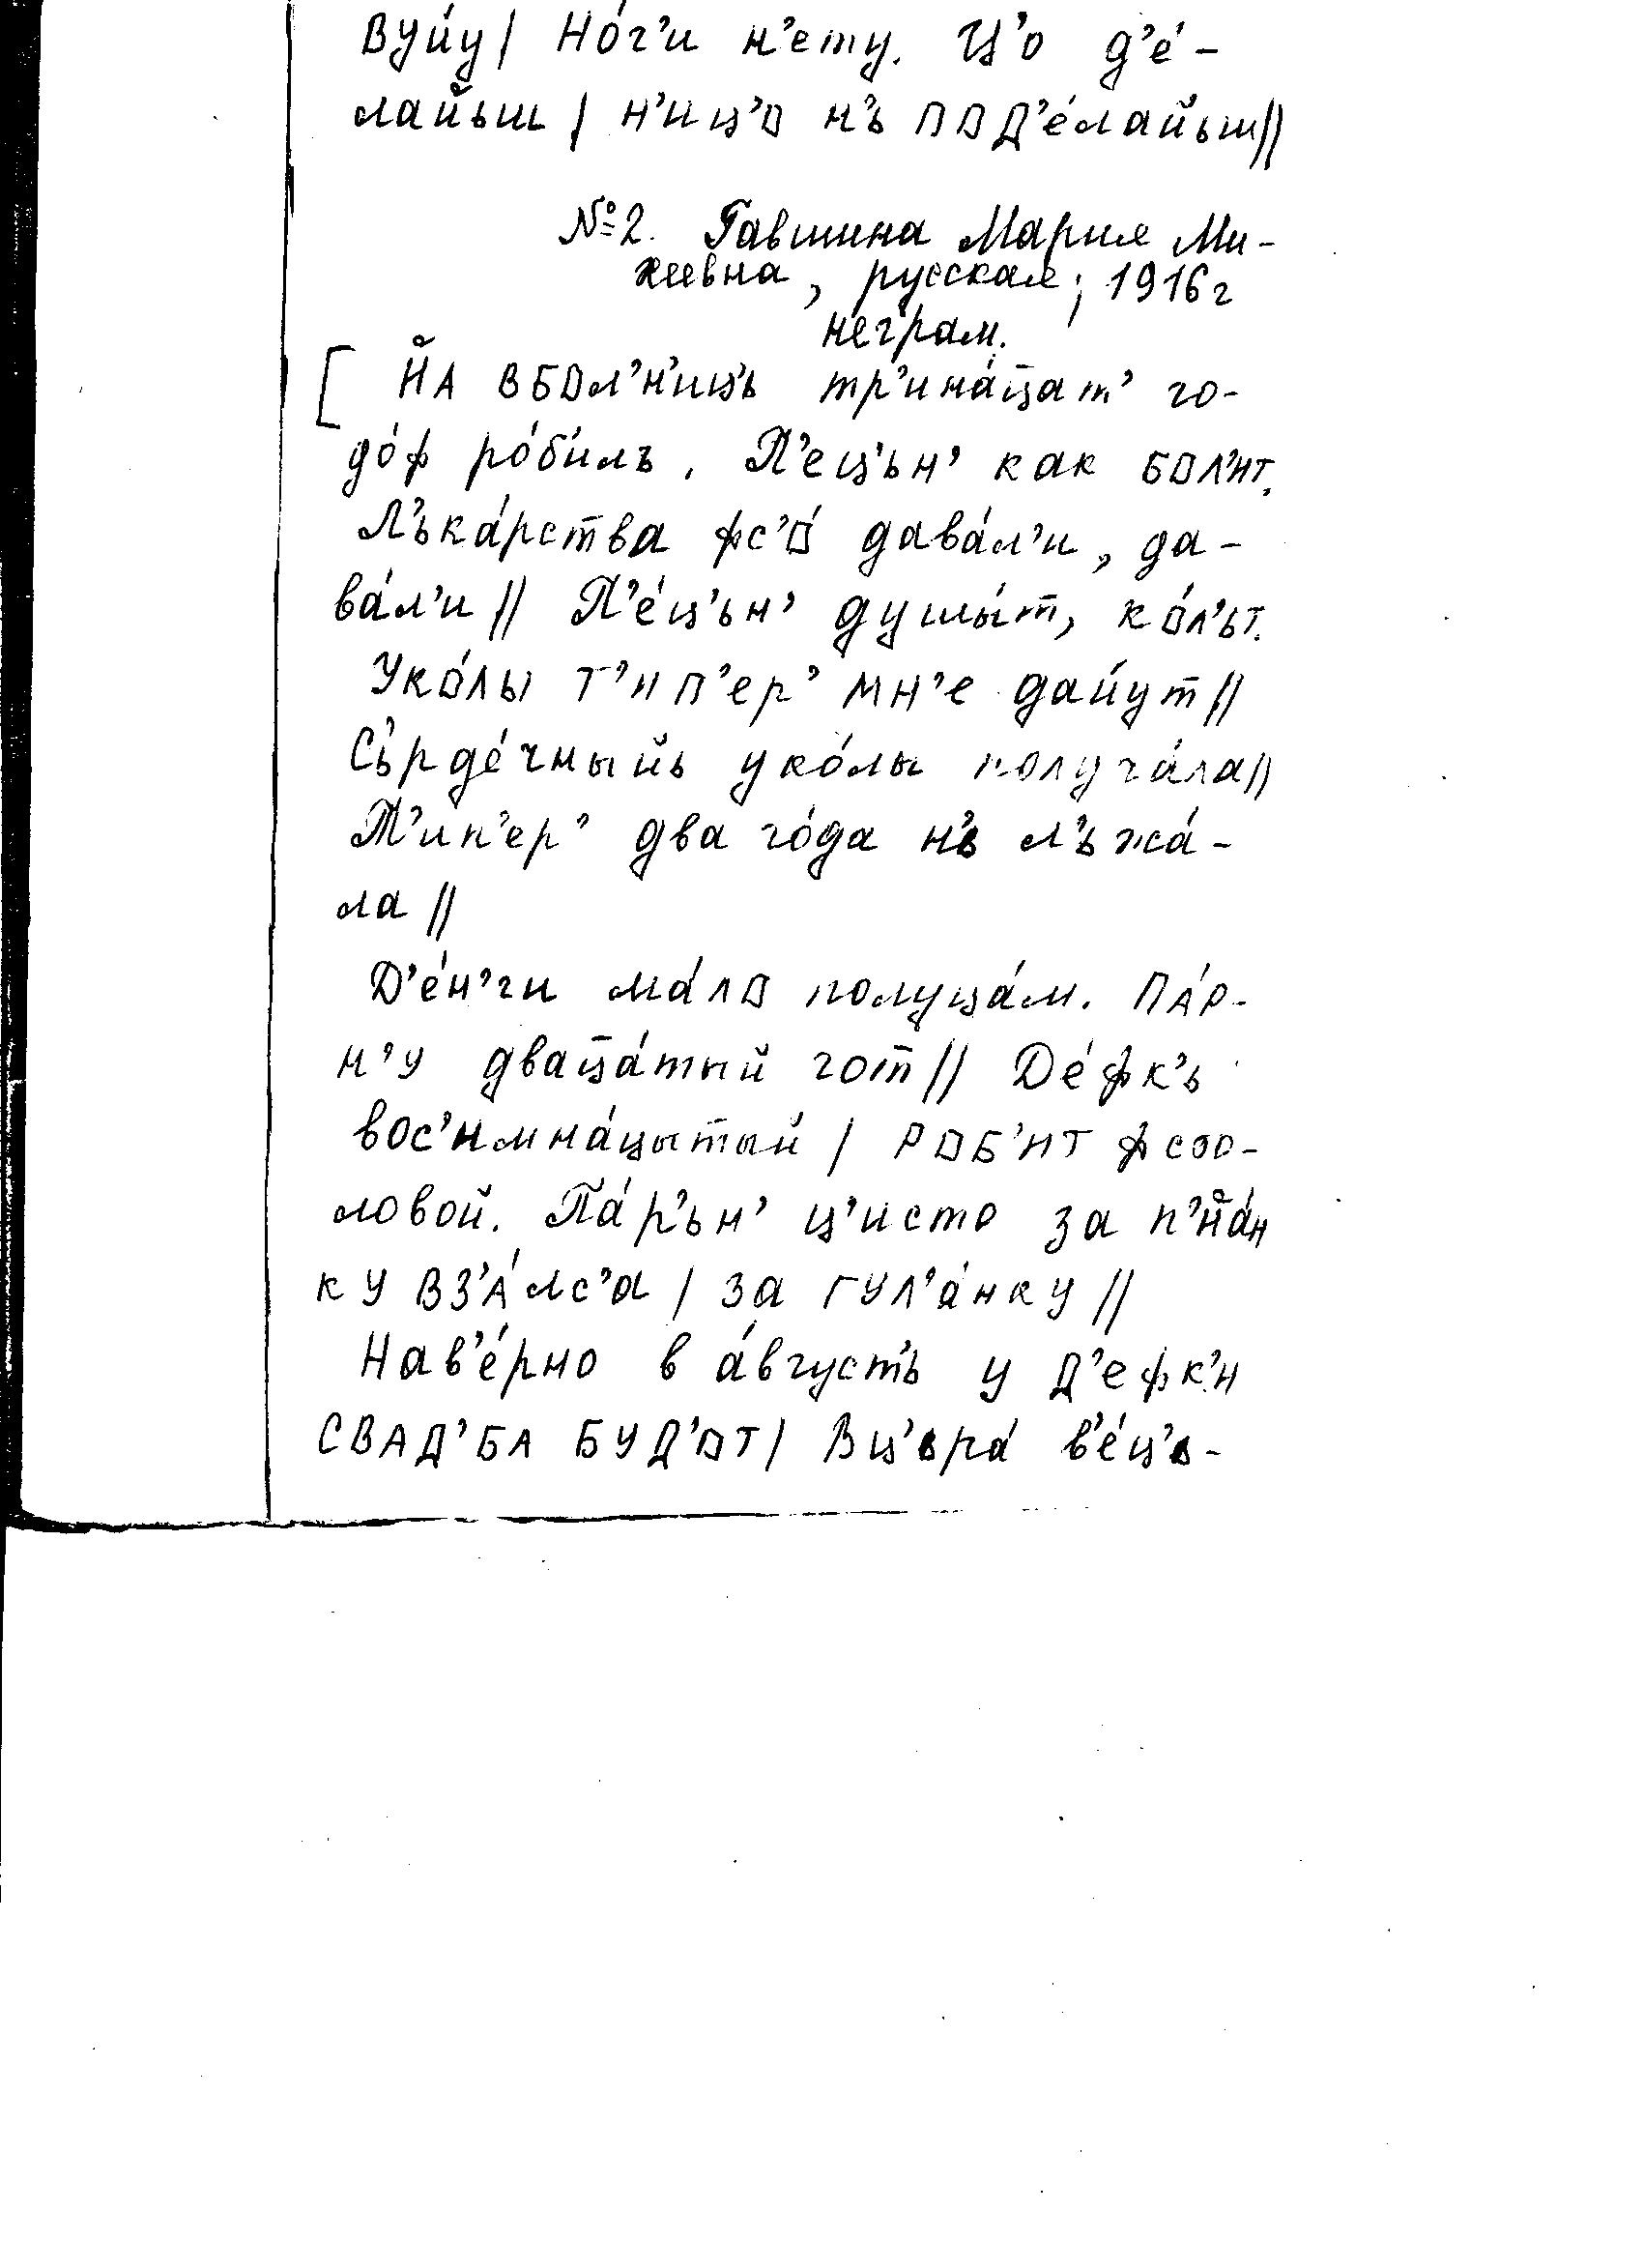 вуйу/ но́г'и н'ету. Ц'о д'е́-
лайьш / н'иц'о н'ъ под'е́лайьш//
№2. Гавшина Мария Ми-
хеевна, русская; 1916г
неграм.
[ йа вбол'н'иц'ь тр'ина́цат' го-
до́ф ро́била. П'ец'ьн' как бол'ит.
Л'ька́рства фс'о́ дава́л'и, да-
ва́л'и // П'е́ц'ьн' душы́т, ко́л'ьт.
Уко́лы т'ип'ер' мн'е дайу́т //
Сьрде́чныйь уко́лы получа́ла//
Т'ип'ер' два го́да н'ь л'ьжа́-
ла //
Д'е́н'ги ма́ло полуца́м. Па́р-
н'у дваца́тый гот // Де́фк'ь
вос'имна́цытый / роб'ит фсто-
ловой. Па́р'ьн' ц'исто за п'йа́н
ку вз'а́лс'а / за гул'а́нку //
Нав'е́рно в а́августь у д'ефк'и
свад'ба буд'от/ Вц'ьра́ в'е́ц'ь-